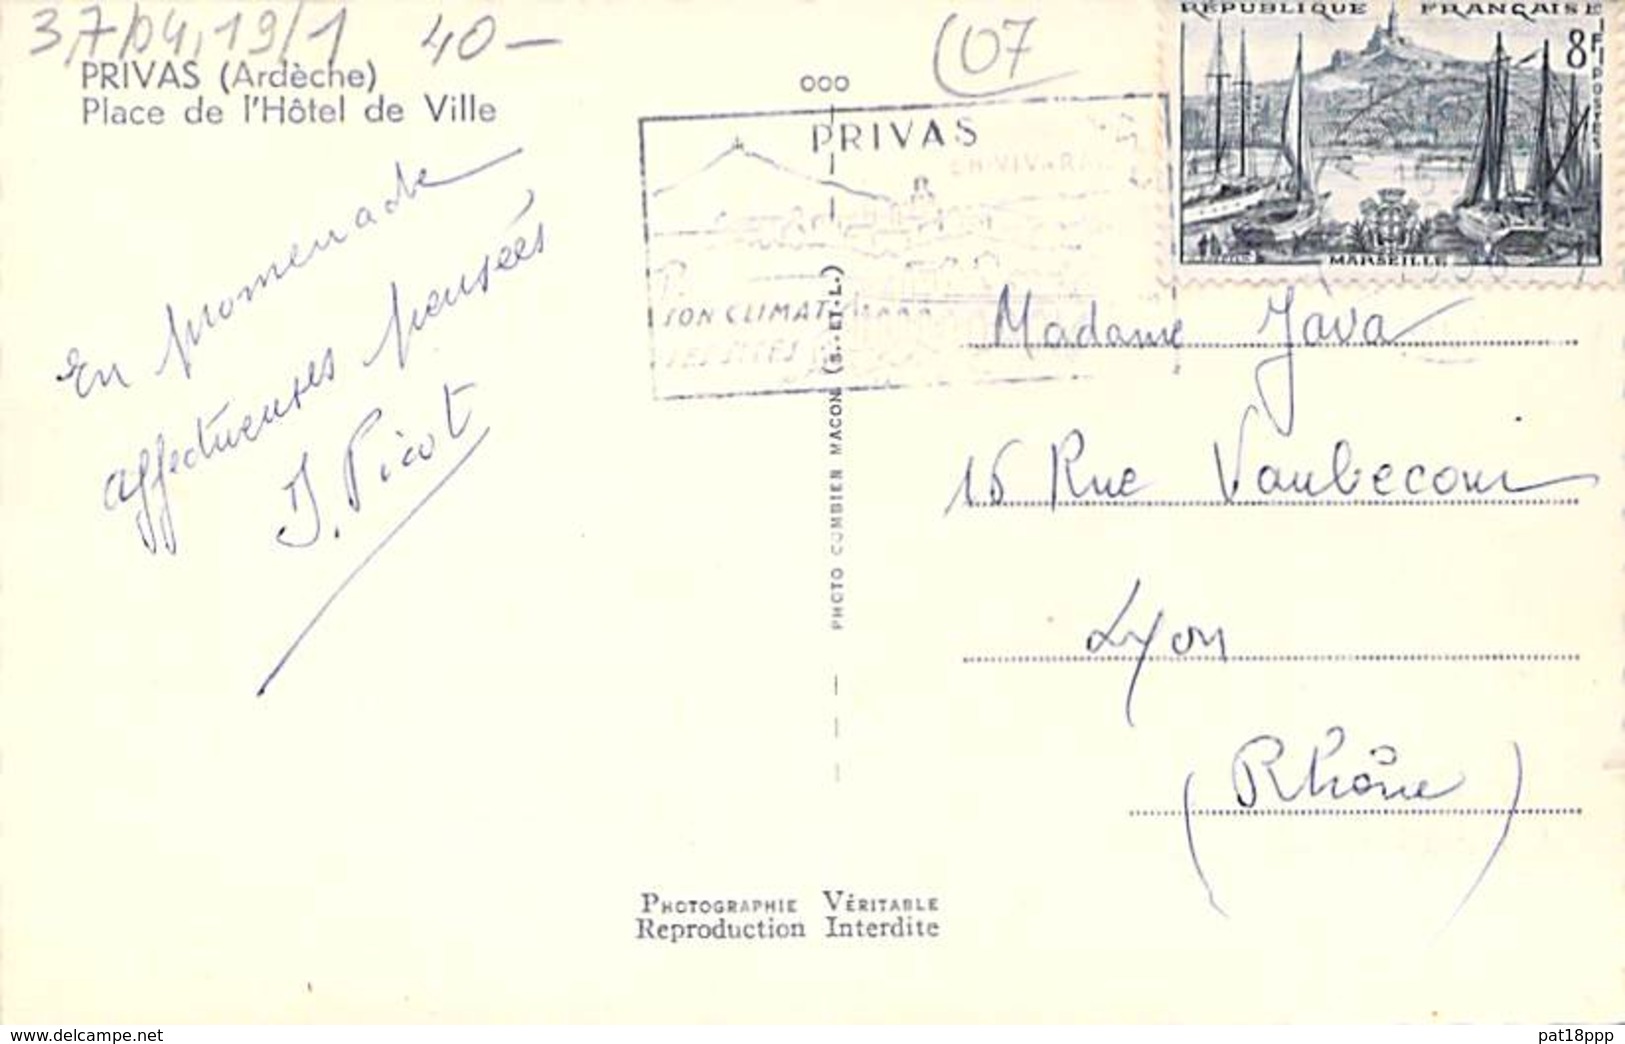 37/04,19/1 40-
(07
PRIVAS (Ardèche)
Place de l'Hôtel de Ville
En promenade
affectueuses pensées
J. Picot
OOO
PRIVAS
EN VIVARAIS
SON CLIMAT
PHOTO COMBIER MACON (S.-ET-L.)
RÉPUBLIQUE FRANÇAISE
8F
POSTES
MARSEILLE
Madame Java
15 Rue Vaubecour
Lyon
(Rhône)
PHOTOGRAPHIE VÉRITABLE
Reproduction Interdite
www.delcampe.net
pat18ppp